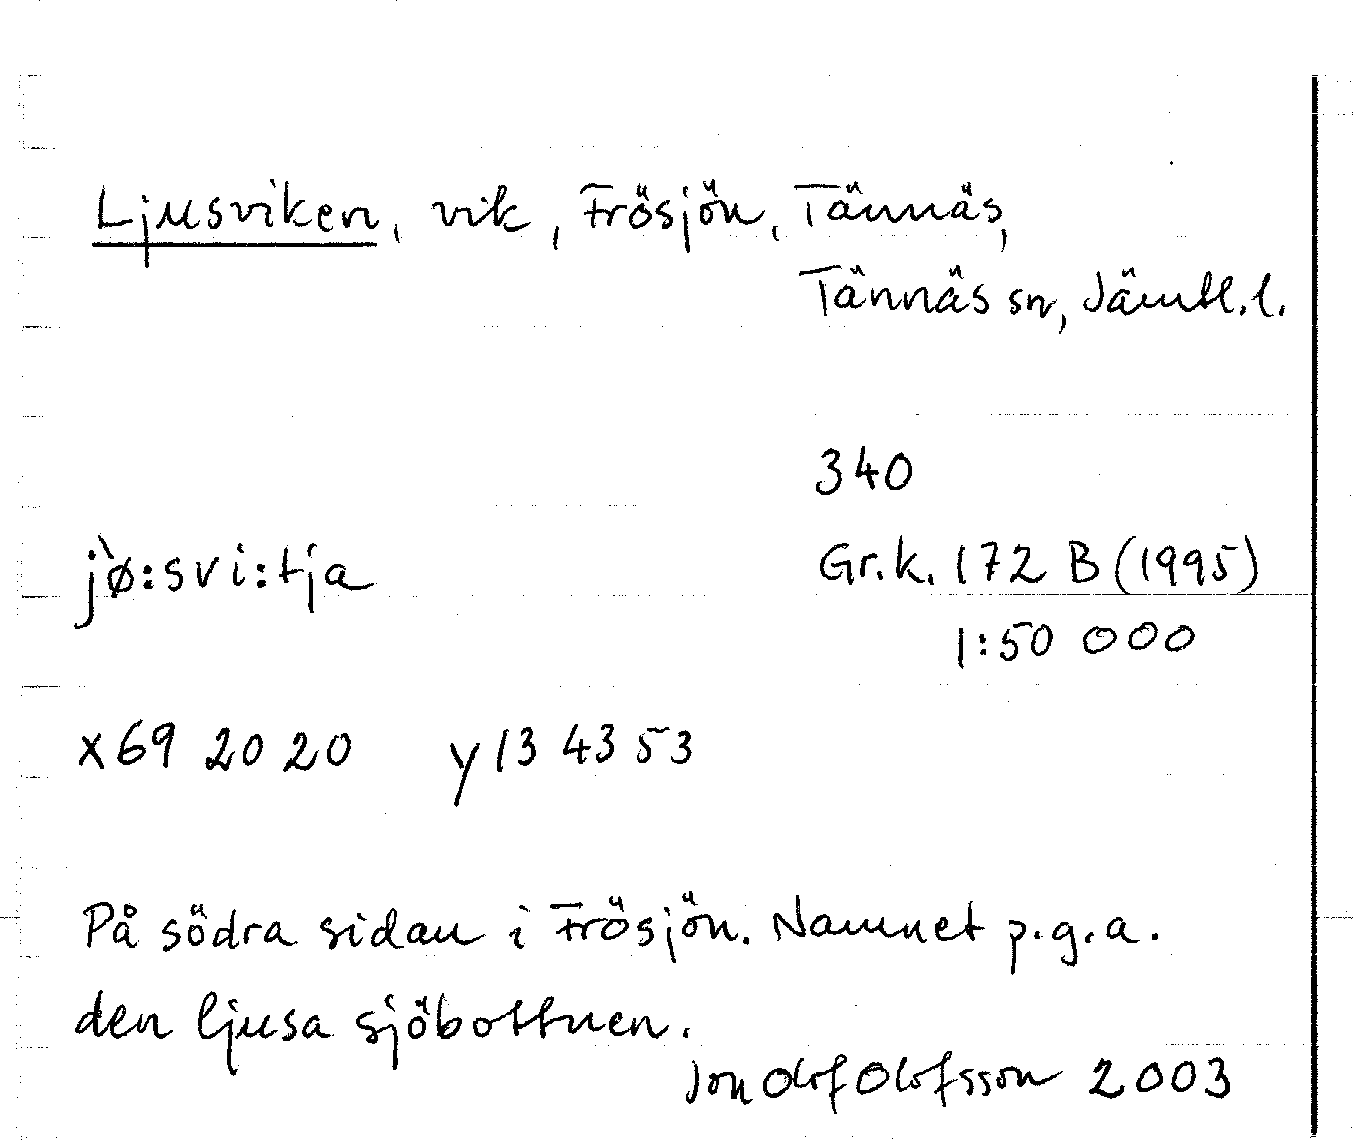 Ljusviken, vik, Frösjön, Tännäs,
Tännäs sn, Jämtl.l.
340
jø̀:svi:tja
Gr.k. 172 B (1995)
1:50 000
x69 20 20 y13 43 53
På södra sidan i Frösjön. Namnet p.g.a.
den ljusa sjöbottnen.
Jon Olof Olofsson 2003